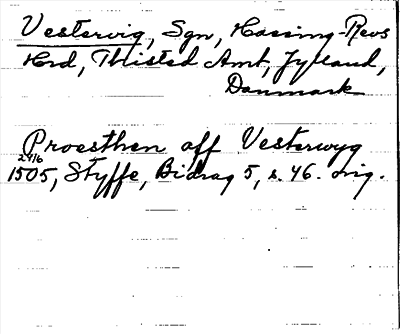 Vestervig, Sgn, Hassing-Refs
Hrd, Thisted Amt, Jylland,
Danmark
Proesthen aff Vesterwyg
24/6
1505, Styffe, Bidrag 5, s. 46. orig.